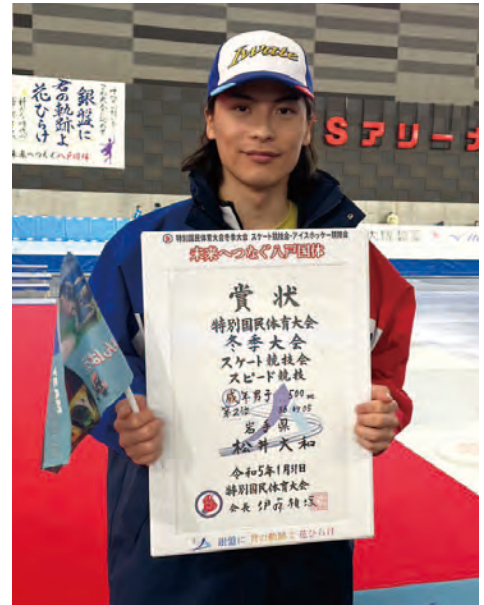 Iwate
銀盤に
君の軌跡よ
花ひらけ
未来へつなぐ八戸国体
Sアリーナ
特別国民体育大会冬季大会 スケート競技会・アイスホッケー競技会
未来へつなぐ八戸国体
賞状
特別国民体育大会
冬季大会
スケート競技会
スピード競技
成年男子 500m
第2位
岩手県
松井大和
令和5年1月31日
特別国民体育大会
会長 伊藤雅俊
銀盤に 君の軌跡よ 花ひらけ
TEAM